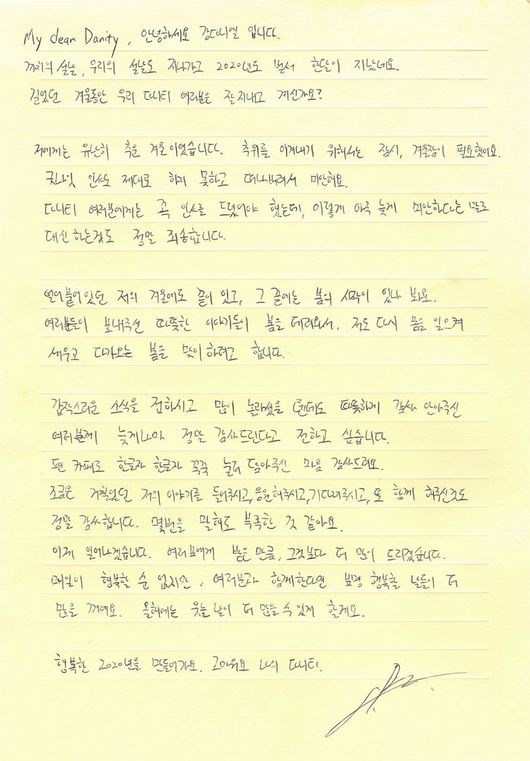 My dear Danity, 안녕하세요 강다니엘 입니다.
까치의 설날, 우리의 설날도 지나가고 2020년도 벌써 한달이 지났네요.
길었던 겨울동안 우리 다니티 여러분들 잘 지내고 계신가요?
저에게는 유난히 추운 겨울이었습니다. 추위를 이겨내기 위해서는 잠시, 겨울잠이 필요했어요.
굿나잇 인사도 제대로 하지 못하고 떠나버려서 미안해요.
다니티 여러분에게는 꼭 인사를 드렸어야 했는데, 이렇게 아주 늦게 미안하다는 말로
대신 하는것도 정말 죄송합니다.
얼어붙어있던 저의 겨울에도 끝이 있고, 그 끝에는 봄의 시작이 있나 봐요.
여러분들이 보내주신 따뜻한 이야기들이 봄을 데려와서, 저도 다시 몸을 일으켜
세우고 다가오는 봄을 맞이하려고 합니다.
갑작스러운 소식을 전하시고 많이 놀라셨을 텐데도 따뜻하게 감싸 안아주신
여러분께 늦게나마 정말 감사드린다고 전하고 싶습니다.
팬 카페로 한글자 한글자 꾹꾹 눌러 담아주신 마음 감사드려요.
조금은 거칠었던 저의 이야기를 들어주시고, 응원해주시고, 기다려주시고, 또 함께 해주신것도
정말 감사합니다. 몇번을 말해도 부족한 것 같아요.
이제 일어나겠습니다. 여러분에게 받은 만큼, 그것보다 더 많이 드리겠습니다.
매일이 행복할 순 없지만, 여러분과 함께한다면 분명 행복할 날들이 더
많을 거예요. 올해에는 웃을 날이 더 많을 수 있게 할게요.
행복한 2020년을 만들어가요. 고마워요 나의 다니티.